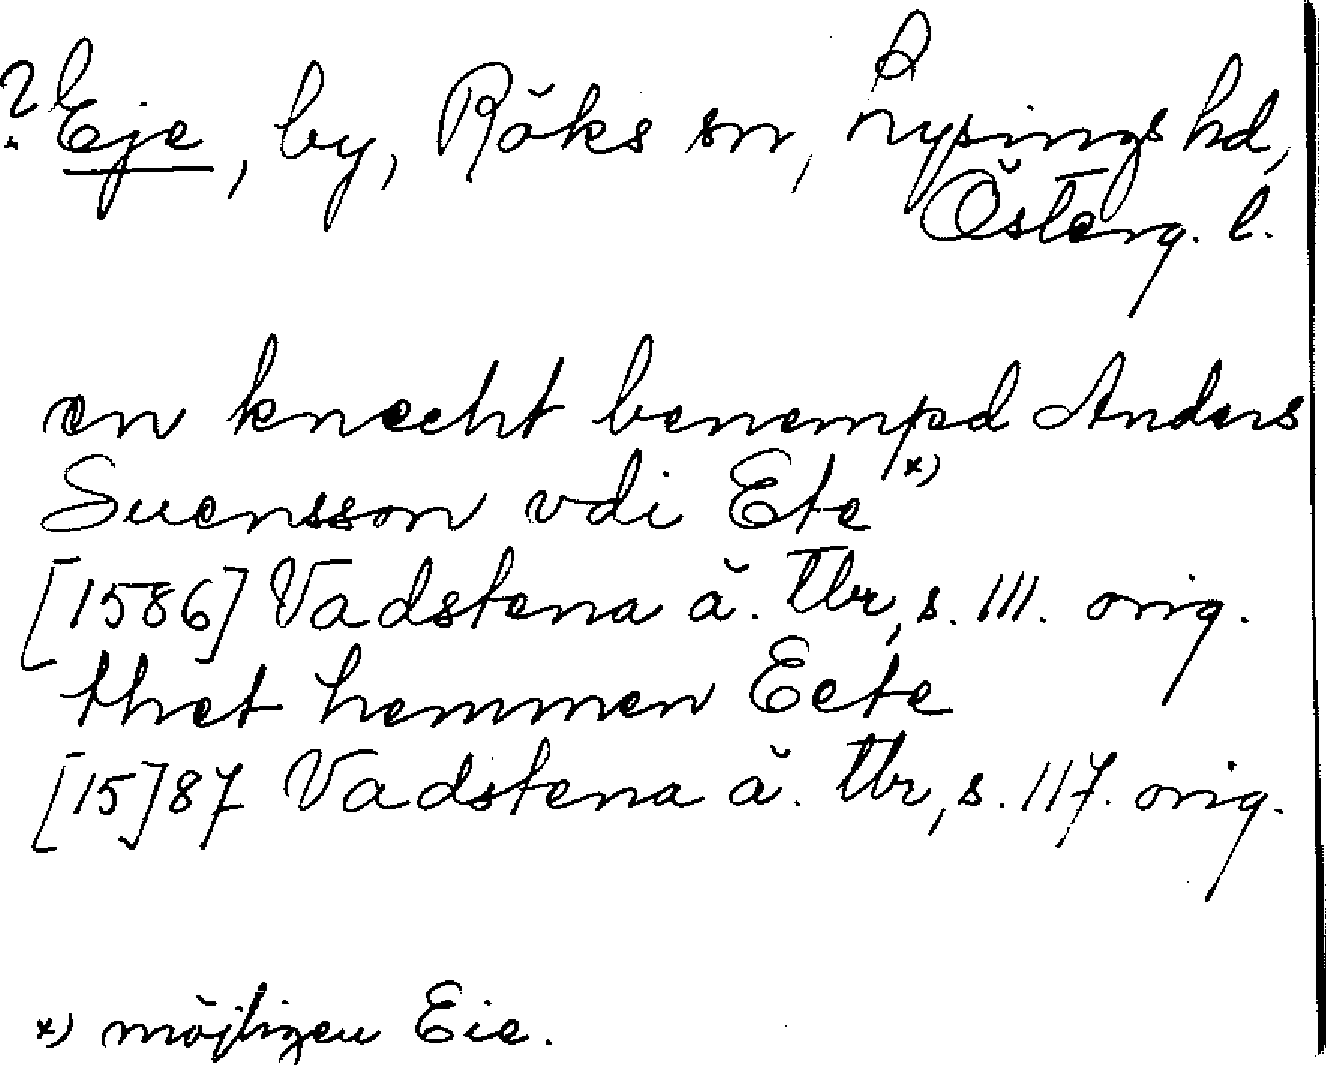 ? Eje, by, Röks sn, Lysings hd,
Österg. l.
en knecht benempd Anders
Suensson vdi Ete x)
[1586] Vadstena ä. Tbr, s. 111. orig.
thet hemmen Eete
[15]87 Vadstena ä. Tbr, s. 117. orig.
x) möjligen Eie.